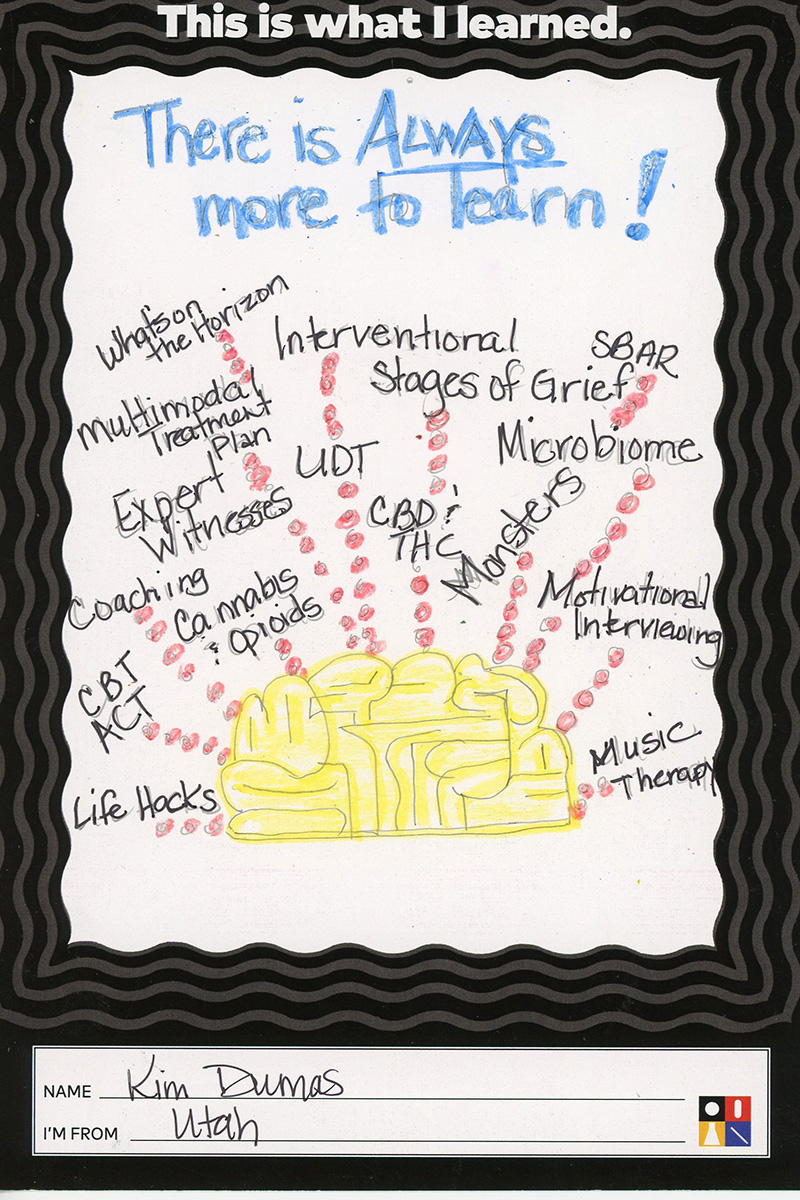 This is what I learned.
There is ALWAYS
more to learn!
What's on
the Horizon
Interventional
SBAR
Stages of Grief
Multimodal
Treatment
Plan
Microbiome
UDT
Expert
Witnesses
CBD &
THC
Monsters
Coaching
Cannabis
& Opioids
Motivational
Interviewing
CBT
ACT
Music
Therapy
Life Hacks
NAME Kim Dumas
I'M FROM Utah